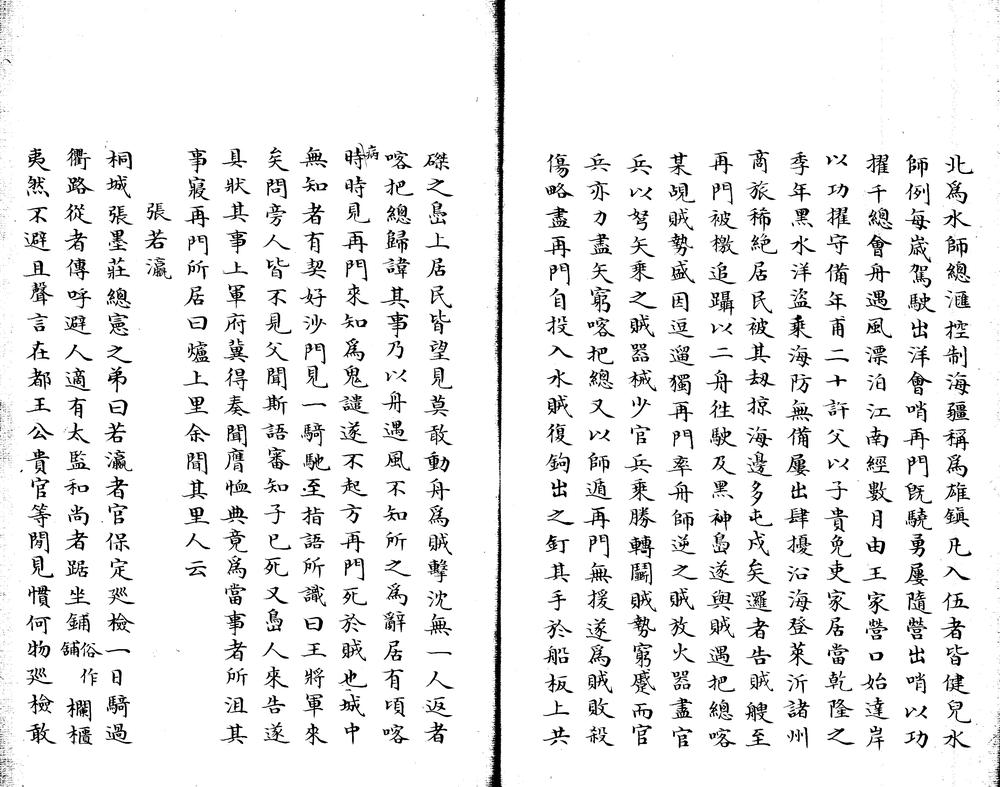 北爲水師總滙控制海疆稱爲雄鎮凡入伍者皆健兒水
師例每歲駕駛出洋會哨再門旣驍勇屢隨營出哨以功
擢千總會舟遇風漂泊江南經數月由王家營口始達岸
以功擢守備年甫二十許父以子貴免吏家居當乾隆之
季年黑水洋盜乘海防無備屢出肆擾沿海登萊沂諸州
商旅稀絕居民被其刼掠海邊多屯戍矣邏者告賊艘至
再門被檄追躡以二舟往駛及黑神島遂與賊遇把總喀
某覘賊勢盛因逗遛獨再門率舟師逆之賊放火器盡官
兵以弩矢乘之賊器械少官兵乘勝轉鬬賊勢窮蹙而官
兵亦力盡矢窮喀把總又以師遁再門無援遂爲賊敗殺
傷略盡再門自投入水賊復鉤出之釘其手於船板上共
磔之島上居民皆望見莫敢動舟爲賊擊沈無一人返者
喀把總歸諱其事乃以舟遇風不知所之爲辭居有頃喀
病時時見再門來知爲鬼譴遂不起方再門死於賊也城中
無知者有契好沙門見一騎馳至指語所識曰王將軍來
矣問旁人皆不見父聞斯語審知子已死又島人來告遂
具狀其事上軍府冀得奏聞膺恤典竟爲當事者所沮其
事寢再門所居曰爐上里余聞其里人云
張若瀛
桐城張墨莊總憲之弟曰若瀛者官保定廵檢一日騎過
衢路從者傳呼避人適有太監和尚者踞坐鋪俗作舖欄櫃
夷然不避且聲言在都王公貴官等閒見慣何物廵檢敢